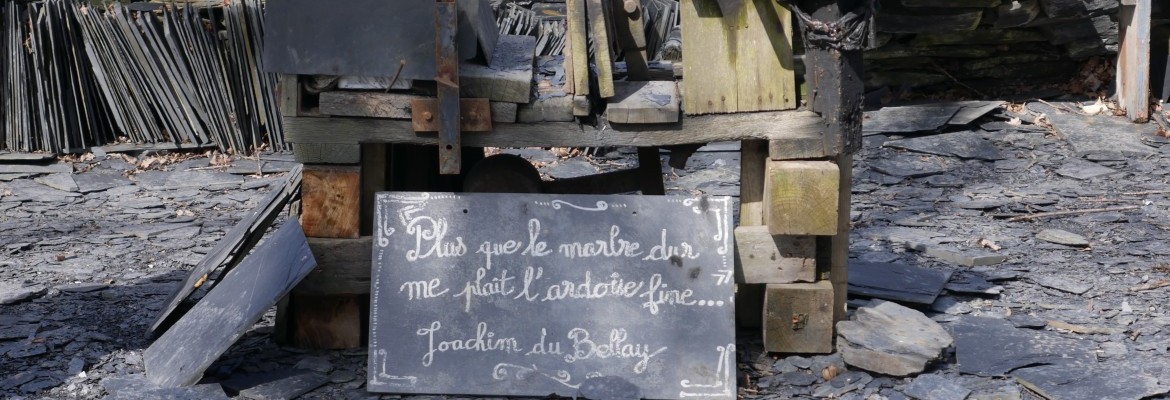 Plus que le marbre dur
me plaît l'ardoise fine...
Joachim du Bellay